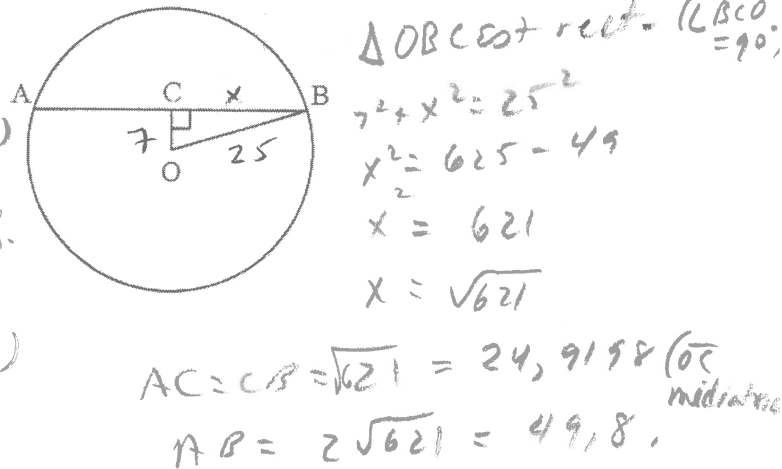 Δ OBC est rect. (∠BCO = 90°)
A C x B
7 25
O
7² + x² = 25²
x² = 625 - 49
x² = 621
x = √621
AC = CB = √621 = 24,9198 (OC médiatrice
AB = 2√621 = 49,8.